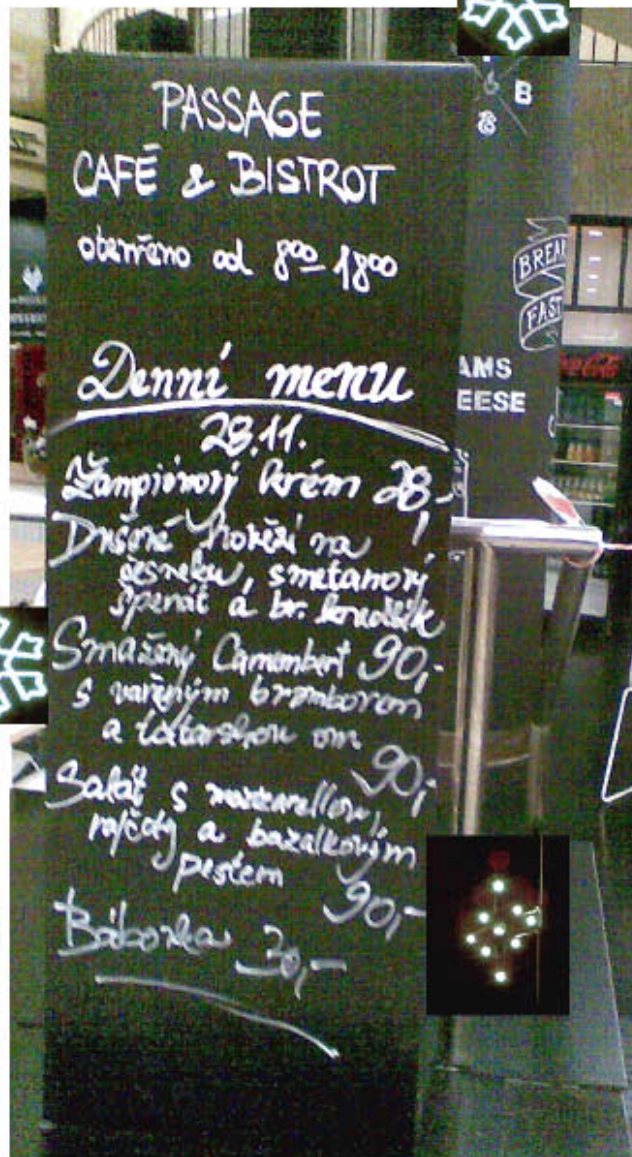 PASSAGE
CAFÉ & BISTROT
otevřeno od 8⁰⁰ - 18⁰⁰
Denní menu
28.11.
Žampiónový krém 28,-
Dušené hovězí na
česneku, smetanový
špenát a br. knedlík
Smažený Camembert 90,-
s vařeným bramborem
a tatarskou om.
90,-
Salát s mozzarellou,
rajčaty a bazalkovým
pestem
90,-
Bábovka 30,-
B
8
BREAK
FAST
AMS
EESE